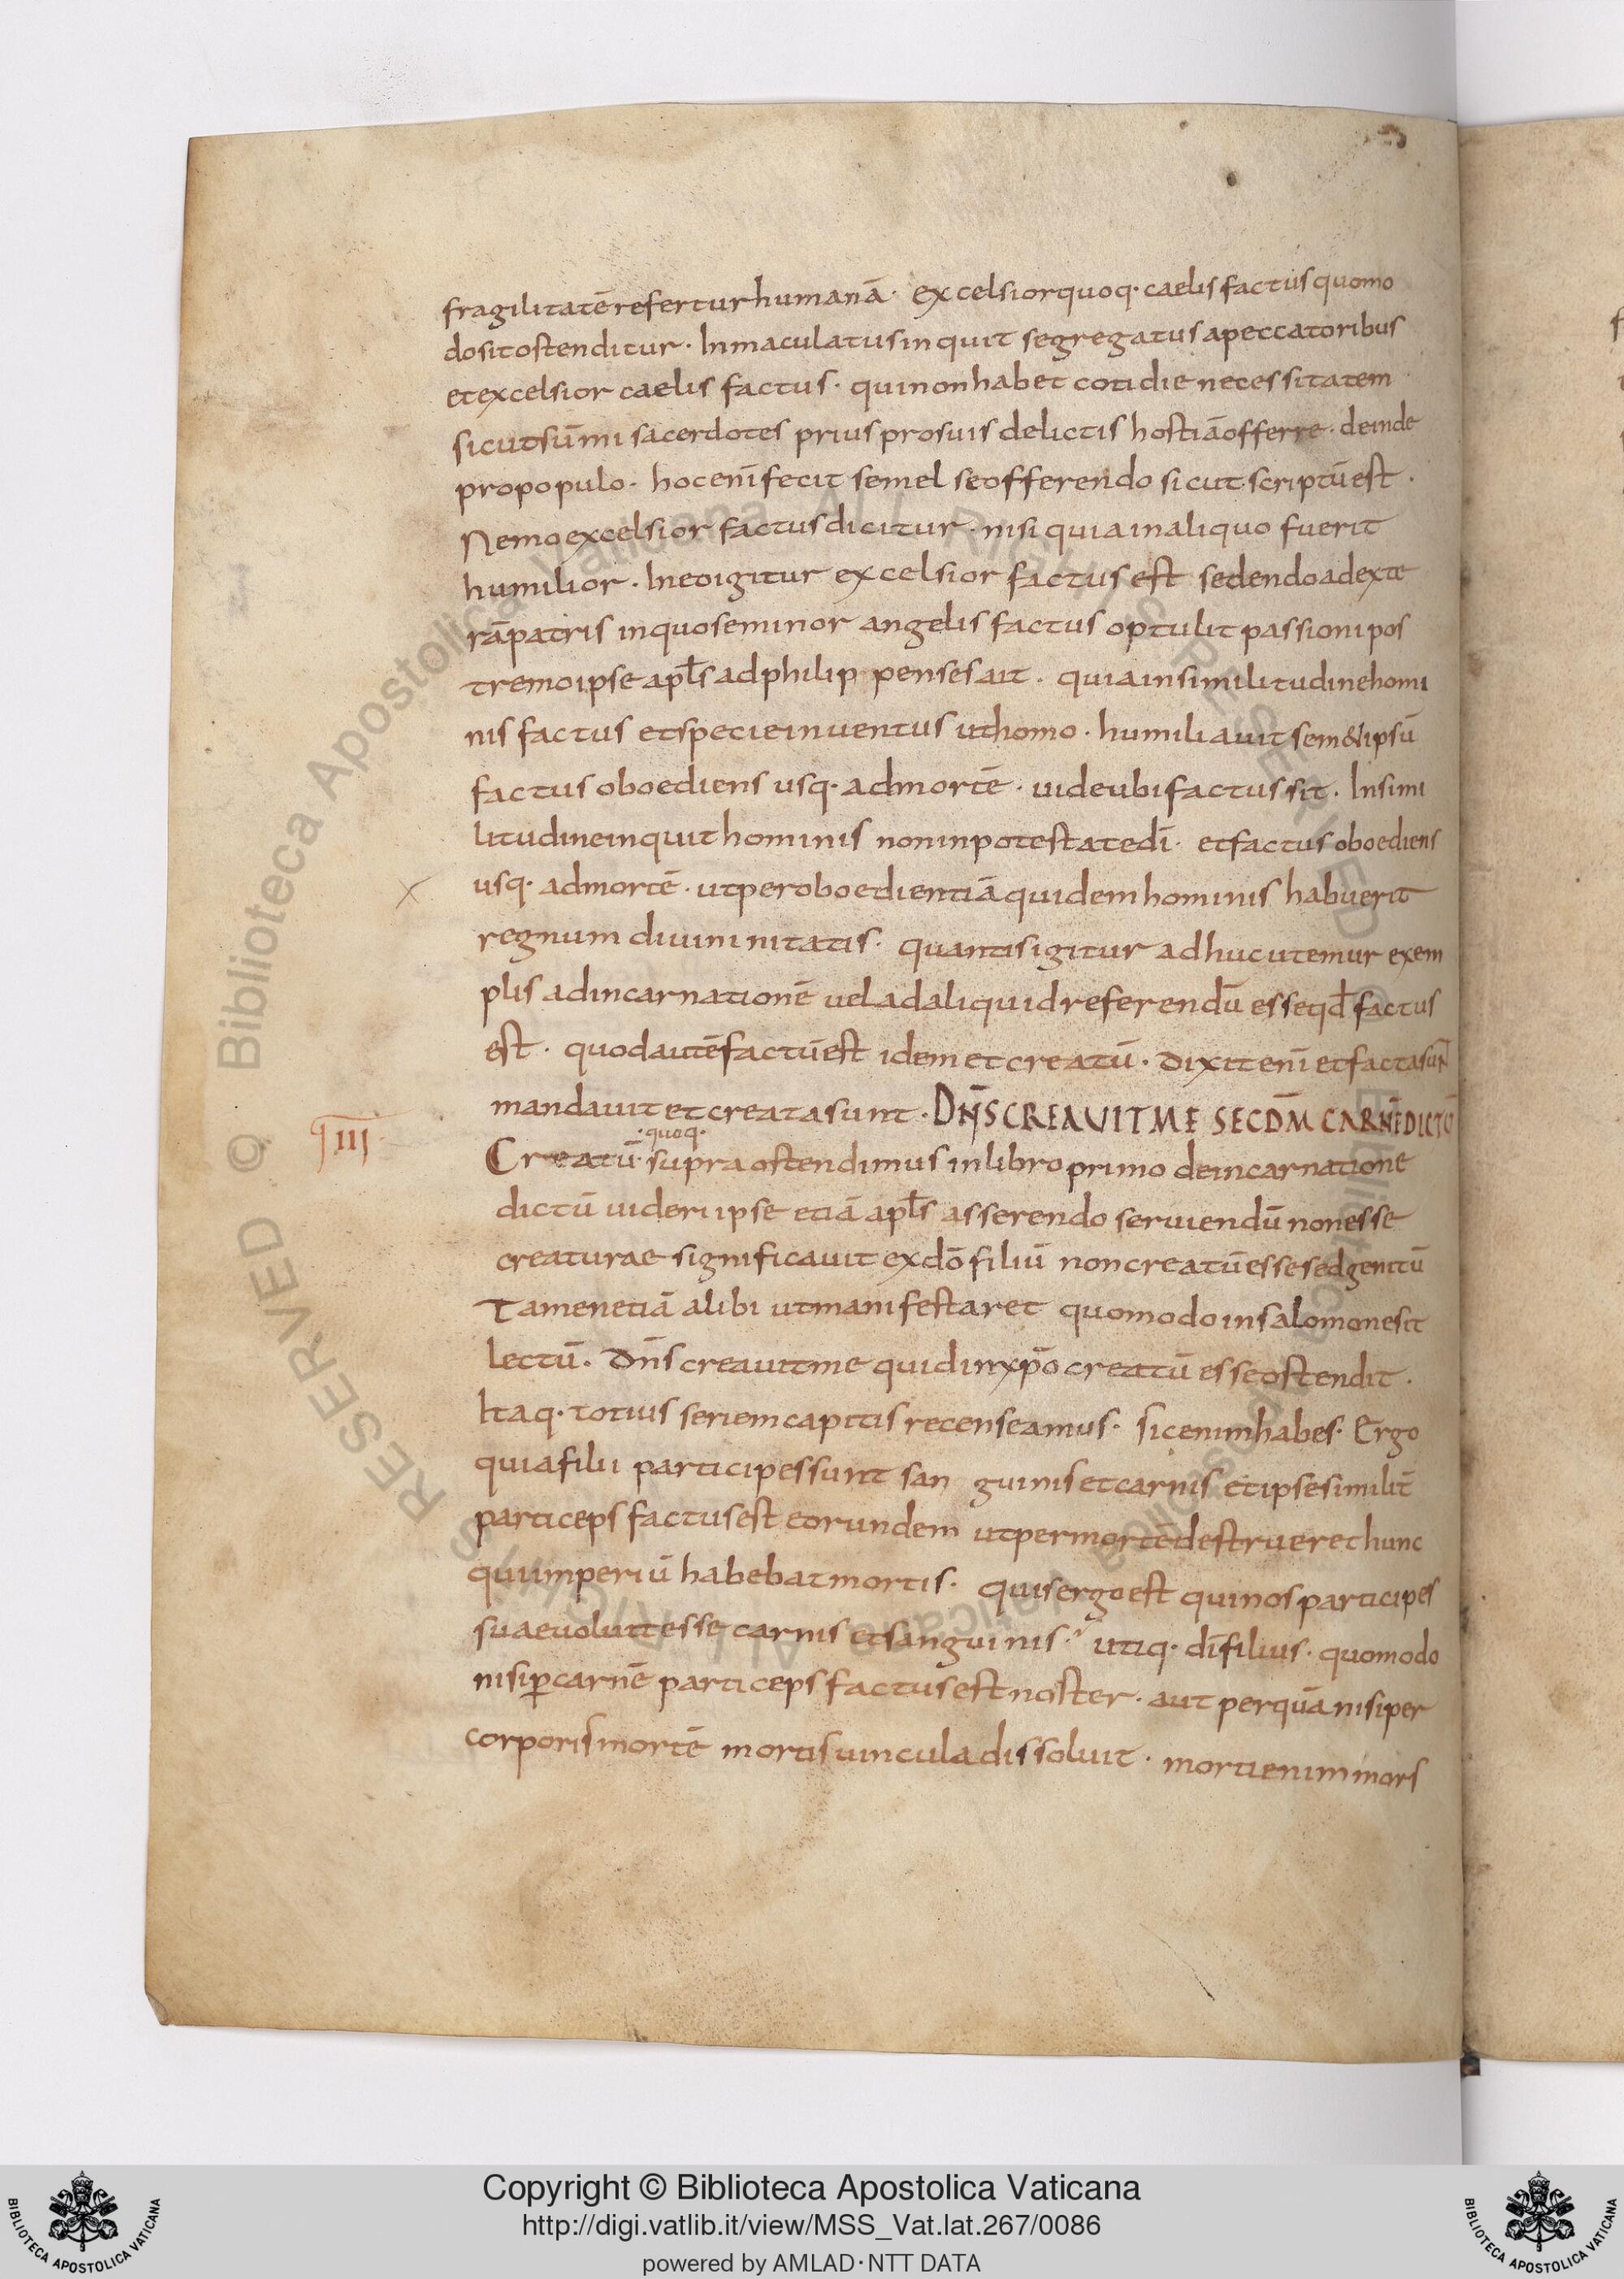 fragilitatē refertur humanā · excelsior quoq· caelis factus quomo
do sit ostenditur · Inmaculatus inquit segregatus a peccatoribus
et excelsior caelis factus · qui non habet cotidie necessitatem
sicut sūmi sacerdotes prius pro suis delictis hostiā offerre · deinde
pro populo · hoc eni̅ fecit semel se offerendo sicut scriptū est ·
Nemo excelsior factus dicitur · nisi qui a in aliquo fuerit
humilior · In eo igitur excelsior factus est sedendo ad dexte
rā patris in quo se minor angelis factus optulit passioni pos
tremo ipse apl̅s ad philippenses ait · quia in similitudine homi
nis factus et specie inuentus ut homo · humiliauit sem&ipsū
factus oboediens usq· ad mortē · uide ubi factus sit · In simi
litudine inquit hominis non in potestate dī · et factus oboediens
usq· ad mortē · ut per oboedientiā quidem hominis habuerit
regnum diuininitatis · quantis igitur adhuc utemur exem
plis ad incarnationē uel ad aliquid referendū esse qd̅ factus
est · quod autē factū est idem et creatū · dixit eni̅ et facta sun̅
mandauit et creata sunt · DN̅S CREAUIT ME SECDM̅ CARNĒ DICTŪ
IIII
·quoq·
Creatū · supra ostendimus in libro primo de incarnatione
dictū uideri ipse etiā apl̅s asserendo seruiendū non esse
creaturae significauit ex dō filiū non creatū esse sed genitū
Tamen etiā alibi ut manifestaret quomodo in salomone sit
lectū · dn̅s creauit me quid in xp̅o creatū esse ostendit ·
Itaq· totius seriem capitis recenseamus · sic enim habes · Ergo
quia filii participes sunt san guinis et carnis et ipse similit̅
particeps factus est eorundem ut per mortē destrueret hunc
qui imperiū habebat mortis · quis ergo est qui nos participes
suae voluit esse carnis et sanguinis · utiq· dī filius · quomodo
nisi p̱ carnē particeps factus est noster · aut per quā nisi per
corporis mortē mortis uincula dissoluit · morti enim mors
Copyright © Biblioteca Apostolica Vaticana
http://digi.vatlib.it/view/MSS_Vat.lat.267/0086
powered by AMLAD · NTT DATA
BIBLIOTECA APOSTOLICA VATICANA
BIBLIOTECA APOSTOLICA VATICANA